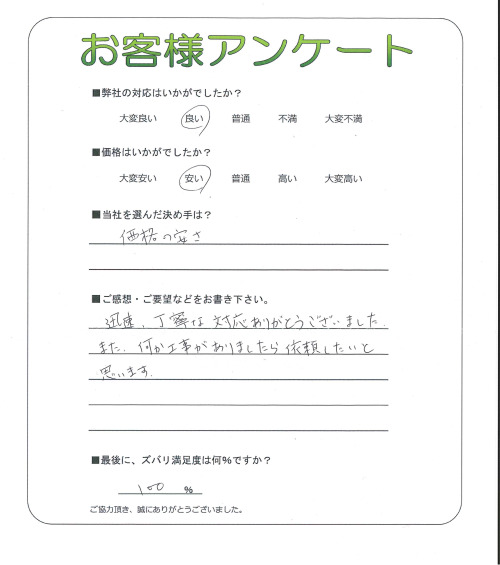 お客様アンケート
■弊社の対応はいかがでしたか？
大変良い 良い 普通 不満 大変不満
■価格はいかがでしたか？
大変安い 安い 普通 高い 大変高い
■当社を選んだ決め手は？
価格の安さ
■ご感想・ご要望などをお書き下さい。
迅速、丁寧な対応ありがとうございました。
また、何か工事がありましたら依頼したいと
思います。
■最後に、ズバリ満足度は何%ですか？
100 %
ご協力頂き、誠にありがとうございました。